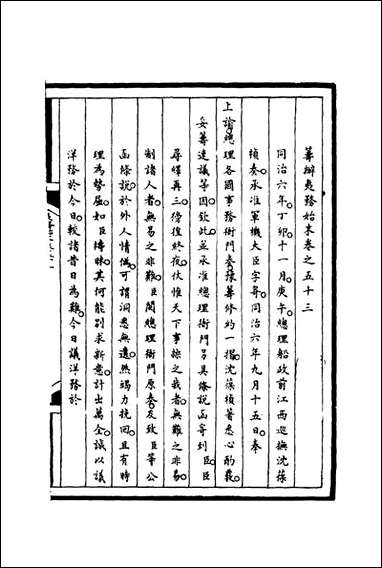 籌辦夷務始末卷之五十三
同治六年丁卯十一月庚午總理船政前江西巡撫沈葆
楨奏承准軍機大臣字寄同治六年九月十五日奉
上諭總理各國事務衙門奏豫籌修約一摺沈葆楨著悉心酌覈
妥籌速議等因欽此並承准總理衙門另具條說函寄到臣臣
尋繹再三徬徨終夜伏惟天下事操之我者無難之非易
制諸人者無易之非難臣閱總理衙門原奏及致臣等公
函條說於外人情僞可謂洞悉無遺然竭力挽回且有時
理為勢屈如臣檮昧其何能別求新意計出萬全誠以議
洋務於今日較諸昔日為難今日議洋務於